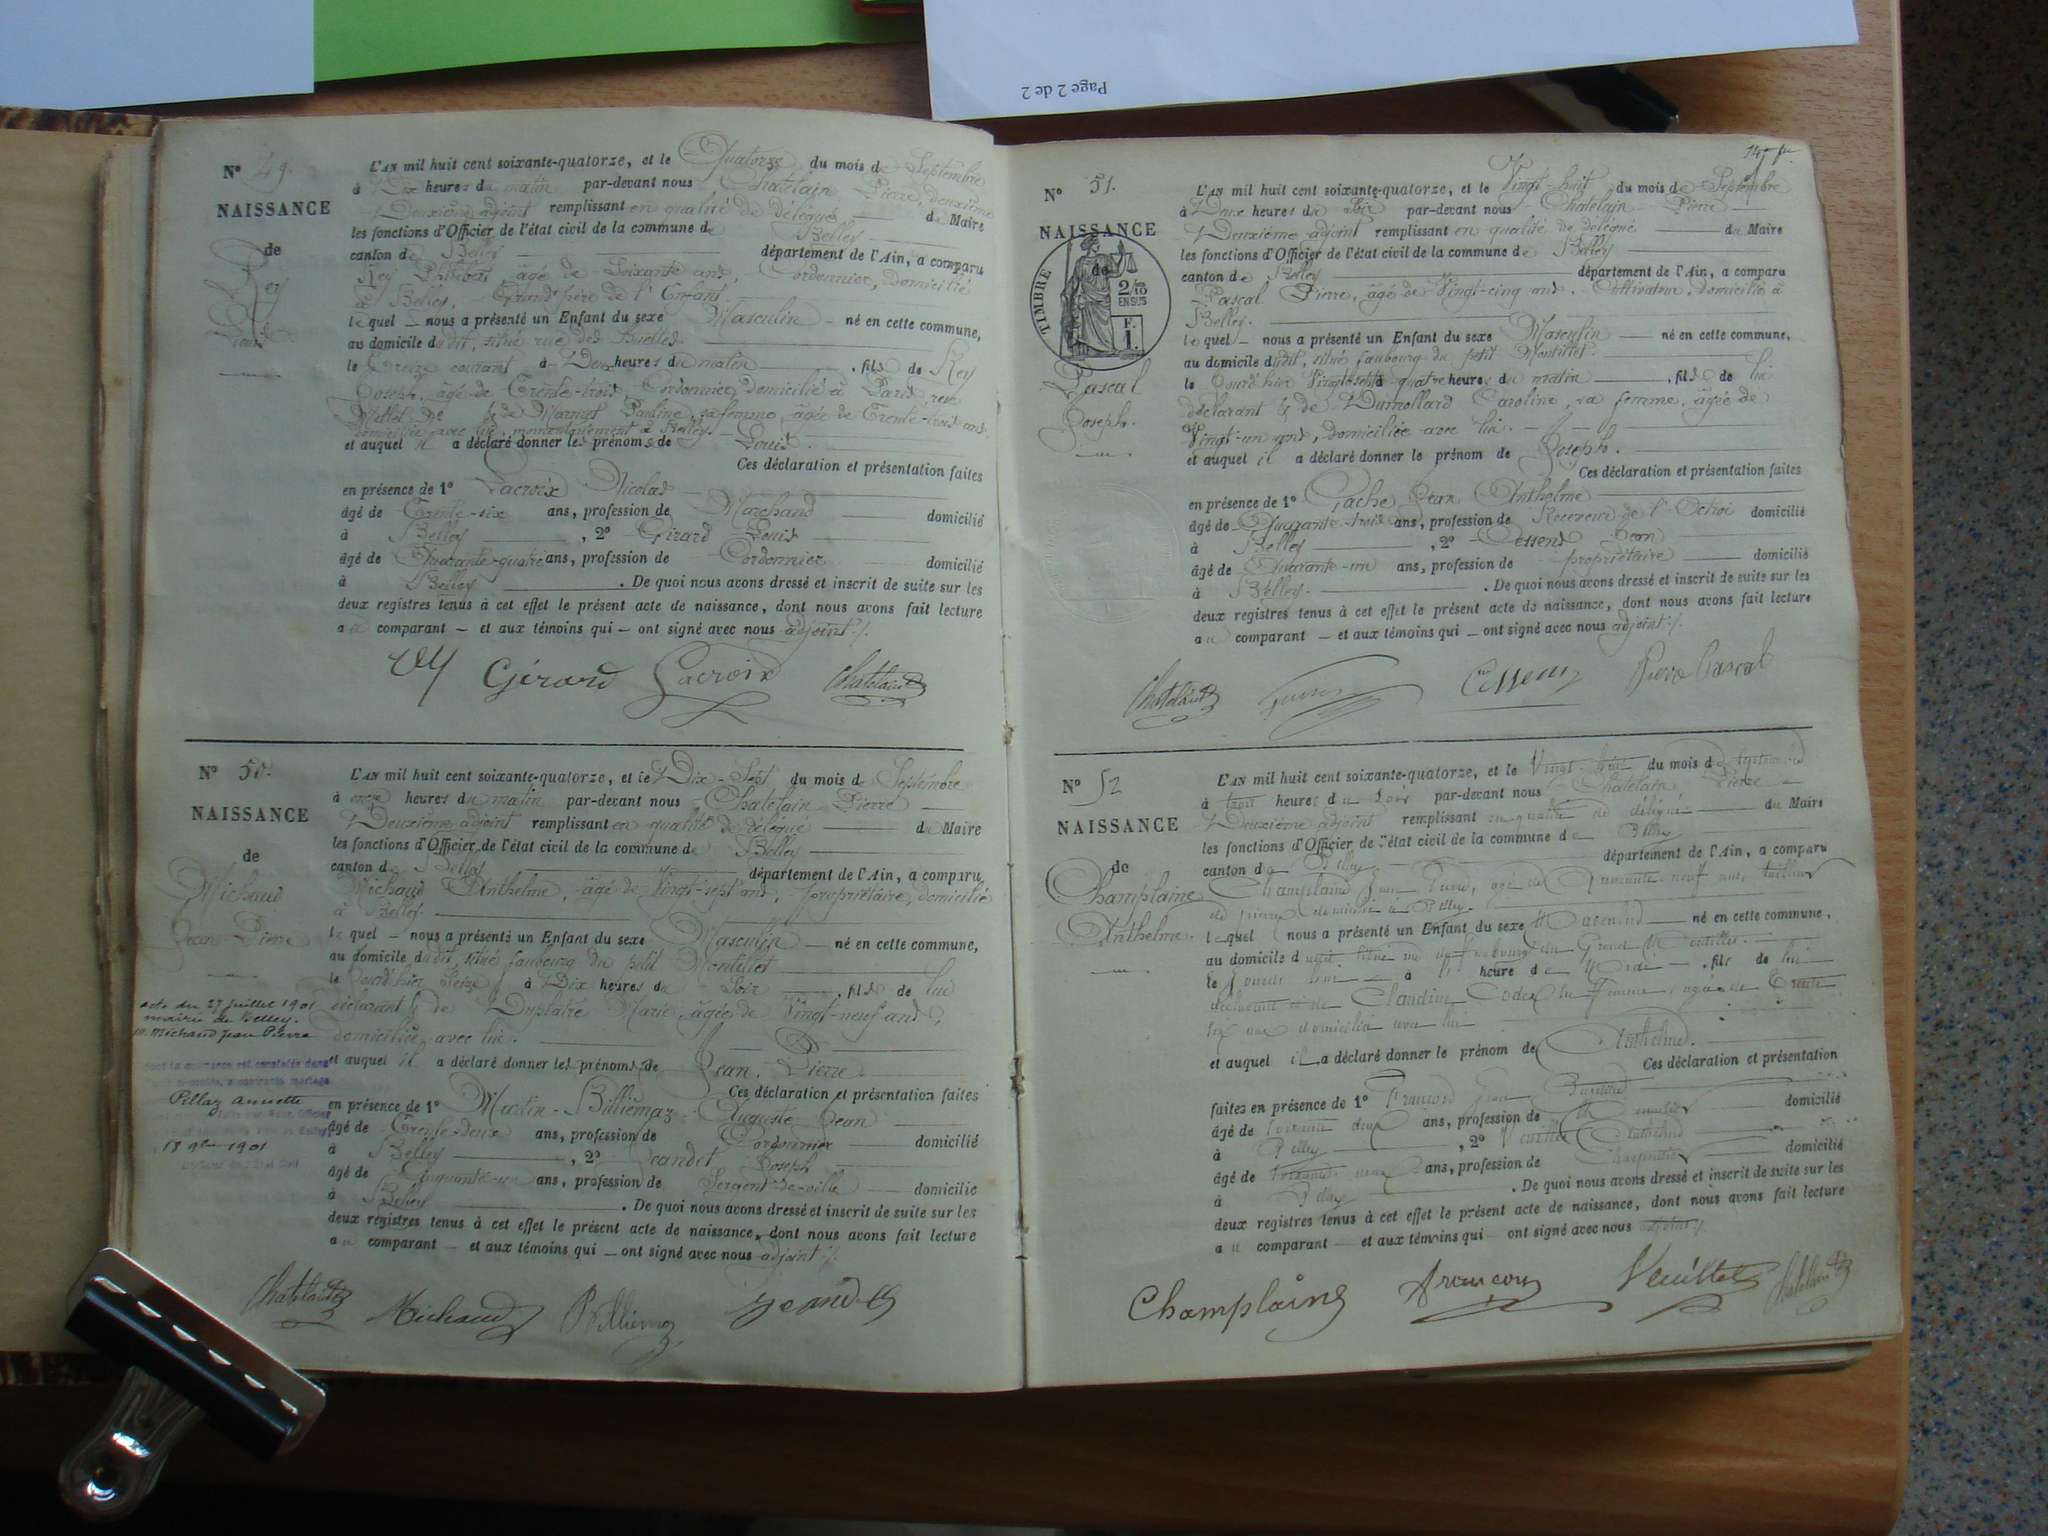 Page 2 de 2
N° 49.
NAISSANCE
de
Rey
Louis
L'AN mil huit cent soixante-quatorze, et le Quatorze du mois de Septembre
à Dix heures du matin par-devant nous Chatelain Pierre, deuxième
Deuxième adjoint remplissant en qualité de délégué du Maire
les fonctions d'Officier de l'état civil de la commune de Belley
canton de Belley département de l'Ain, a comparu
Rey Philibert âgé de Soixante ans, Cordonnier, domicilié
à Belley, Grand'père de l'Enfant.
lequel nous a présenté un Enfant du sexe Masculin né en cette commune,
au domicile dudit, situé rue des
le Treize courant à Deux heures du matin, fils de Rey
Joseph, âgé de Trente-trois, Cordonnier domicilié à Paris, rue
de Pauline, sa femme, âgée de Trente-trois ans
domiciliée avec lui, momentanément à Belley.
et auquel il a déclaré donner les prénoms de Louis.
Ces déclaration et présentation faites
en présence de 1° Lacroix Nicolas
âgé de Trente-six ans, profession de Marchand domicilié
à Belley, 2° Girard Louis
âgé de Quarante-quatre ans, profession de Cordonnier domicilié
à Belley. De quoi nous avons dressé et inscrit de suite sur les
deux registres tenus à cet effet le présent acte de naissance, dont nous avons fait lecture
au comparant et aux témoins qui ont signé avec nous adjoint ./.
Rey Gérard Lacroix Chatelain
N° 50.
NAISSANCE
de
Michaud
Jean Pierre
acte du 27 juillet 1901
mairie de Belley.
Michaud Jean Pierre
Pillaz Annette
18 9bre 1901
L'AN mil huit cent soixante-quatorze, et le Dix-Sept du mois de Septembre
à onze heures du matin par-devant nous Chatelain Pierre
Deuxième adjoint remplissant en qualité de délégué du Maire
les fonctions d'Officier de l'état civil de la commune de Belley
canton de Belley département de l'Ain, a comparu
Michaud Anthelme, âgé de Vingt-sept ans, propriétaire, domicilié
à Belley.
lequel nous a présenté un Enfant du sexe Masculin né en cette commune,
au domicile dudit, situé faubourg du petit Montillet
le Jourd'hier Seize à Dix heures du Soir, fils de lui
déclarant & de Duplatre Marie, âgée de Vingt-neuf ans,
domiciliée avec lui.
et auquel il a déclaré donner les prénoms de Jean Pierre
Ces déclaration et présentation faites
en présence de 1° Martin-Billiemaz Auguste Jean
âgé de Trente-deux ans, profession de domicilié
à Belley, 2° Jeandet Joseph
âgé de Cinquante-un ans, profession de Sergent-de-ville domicilié
à Belley. De quoi nous avons dressé et inscrit de suite sur les
deux registres tenus à cet effet le présent acte de naissance, dont nous avons fait lecture
au comparant et aux témoins qui ont signé avec nous adjoint ./.
Chatelain Michaud Billiemaz Jeandet
N° 51.
NAISSANCE
de
TIMBRE
2/10
EN SUS
F.
1.
Pascal
Joseph.
L'AN mil huit cent soixante-quatorze, et le Vingt-huit du mois de Septembre
à Deux heures du Soir par-devant nous Chatelain Pierre
Deuxième adjoint remplissant en qualité de délégué du Maire
les fonctions d'Officier de l'état civil de la commune de Belley
canton de Belley département de l'Ain, a comparu
Pascal Pierre, âgé de Vingt-cinq ans, Cultivateur, domicilié à
Belley.
lequel nous a présenté un Enfant du sexe Masculin né en cette commune,
au domicile dudit, situé faubourg du petit Montillet.
le Jourd'hier Vingt-sept à quatre heures du matin, fils de lui
déclarant & de Dumollard Caroline, sa femme, âgée de
Vingt-un ans, domiciliée avec lui.
et auquel il a déclaré donner le prénom de Joseph.
Ces déclaration et présentation faites
en présence de 1° Gache Jean Anthelme
âgé de Quarante-trois ans, profession de Receveur de l'Octroi domicilié
à Belley, 2° Cessens Jean
âgé de Quarante-un ans, profession de propriétaire domicilié
à Belley. De quoi nous avons dressé et inscrit de suite sur les
deux registres tenus à cet effet le présent acte de naissance, dont nous avons fait lecture
au comparant et aux témoins qui ont signé avec nous adjoint ./.
Chatelain Cessens Pierre Pascal
N° 52
NAISSANCE
de
Champlaine
Anthelme.
L'AN mil huit cent soixante-quatorze, et le Vingt-huit du mois de Septembre
à trois heures du Soir par-devant nous Chatelain Pierre
Deuxième adjoint remplissant en qualité de délégué du Maire
les fonctions d'Officier de l'état civil de la commune de Belley
canton de Belley département de l'Ain, a comparu
Champlaine Jean âgé de Quarante-neuf ans, tailleur
de pierre domicilié à Belley.
lequel nous a présenté un Enfant du sexe Masculin né en cette commune,
au domicile dudit situé faubourg du Grand Montillet
le Jourd'hui à heure de fils de lui
déclarant et de Claudine sa femme, âgée de Trente
six ans domiciliée avec lui
et auquel il a déclaré donner le prénom de Anthelme.
Ces déclaration et présentation
faites en présence de 1°
âgé de Soixante deux ans, profession de domicilié
à Belley, 2° Veuillet Anthelme
âgé de ans, profession de Charpentier domicilié
à Belley. De quoi nous avons dressé et inscrit de suite sur les
deux registres tenus à cet effet le présent acte de naissance, dont nous avons fait lecture
au comparant et aux témoins qui ont signé avec nous adjoint ./.
Champlaine Veuillet Chatelain